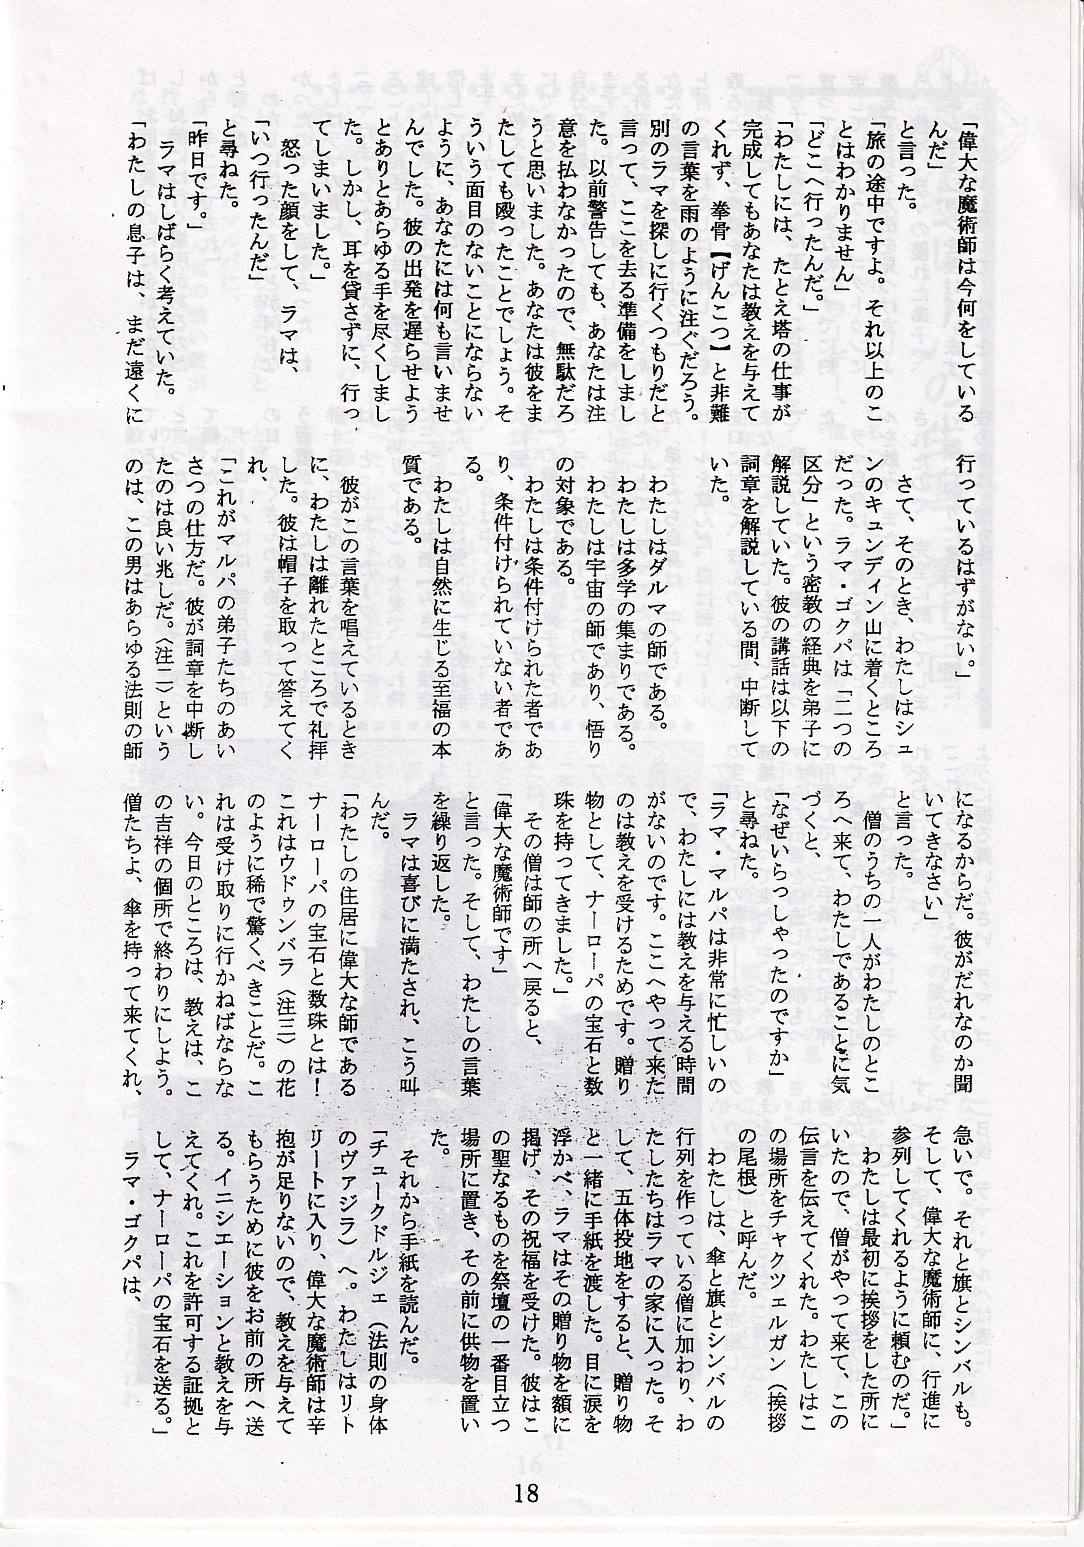 「偉大な魔術師は今何をしている
んだ」
と言った。
「旅の途中ですよ。それ以上のこ
とはわかりません」
「どこへ行ったんだ。」
「わたしには、たとえ塔の仕事が
完成してもあなたは教えを与えて
くれず、拳骨【げんこつ】と非難
の言葉を雨のように注ぐだろう。
別のラマを探しに行くつもりだと
言って、ここを去る準備をしまし
た。以前警告しても、あなたは注
意を払わなかったので、無駄だろ
うと思いました。あなたは彼をま
たしても殴ったことでしょう。そ
ういう面目のないことにならない
ように、あなたには何も言いませ
んでした。彼の出発を遅らせよう
とありとあらゆる手を尽くしまし
た。しかし、耳を貸さずに、行っ
てしまいました。」
怒った顔をして、ラマは、
「いつ行ったんだ」
と尋ねた。
「昨日です。」
ラマはしばらく考えていた。
「わたしの息子は、まだ遠くに
行っているはずがない。」
さて、そのとき、わたしはシュ
ンのキュンディン山に着くところ
だった。ラマ・ゴクパは「二つの
区分」という密教の経典を弟子に
解説していた。彼の講話は以下の
詞章を解説している間、中断して
いた。
わたしはダルマの師である。
わたしは多学の集まりである。
わたしは宇宙の師であり、悟り
の対象である。
わたしは条件付けられた者であ
り、条件付けられていない者であ
る。
わたしは自然に生じる至福の本
質である。
彼がこの言葉を唱えているとき
に、わたしは離れたところで礼拝
した。彼は帽子を取って答えてく
れ、
「これがマルパの弟子たちのあい
さつの仕方だ。彼が詞章を中断し
たのは良い兆しだ。〈注二〉という
のは、この男はあらゆる法則の師
になるからだ。彼がだれなのか聞
いてきなさい」
と言った。
僧のうちの一人がわたしのとこ
ろへ来て、わたしであることに気
づくと、
「なぜいらっしゃったのですか」
と尋ねた。
「ラマ・マルパは非常に忙しいの
で、わたしには教えを与える時間
がないのです。ここへやって来た
のは教えを受けるためです。贈り
物として、ナーローパの宝石と数
珠を持ってきました。」
その僧は師の所へ戻ると、
「偉大な魔術師です」
と言った。そして、わたしの言葉
を繰り返した。
ラマは喜びに満たされ、こう叫
んだ。
「わたしの住居に偉大な師である
ナーローパの宝石と数珠とは！
これはウドゥンバラ〈注三〉の花
のように稀で驚くべきことだ。こ
れは受け取りに行かねばならな
い。今日のところは、教えは、こ
の吉祥の個所で終わりにしよう。
僧たちよ、傘を持って来てくれ、
急いで。それと旗とシンバルも。
そして、偉大な魔術師に、行進に
参列してくれるように頼むのだ。」
わたしは最初に挨拶をした所に
いたので、僧がやって来て、この
伝言を伝えてくれた。わたしはこ
の場所をチャクツェルガン（挨拶
の尾根）と呼んだ。
わたしは、傘と旗とシンバルの
行列を作っている僧に加わり、わ
たしたちはラマの家に入った。そ
して、五体投地をすると、贈り物
と一緒に手紙を渡した。目に涙を
浮かべ、ラマはその贈り物を額に
掲げ、その祝福を受けた。彼はこ
の聖なるものを祭壇の一番目立つ
場所に置き、その前に供物を置い
た。
それから手紙を読んだ。
「チュークドルジェ（法則の身体
のヴァジラ）へ。わたしはリト
リートに入り、偉大な魔術師は辛
抱が足りないので、教えを与えて
もらうために彼をお前の所へ送
る。イニシエーションと教えを与
えてくれ。これを許可する証拠と
して、ナーローパの宝石を送る。」
ラマ・ゴクパは、
18